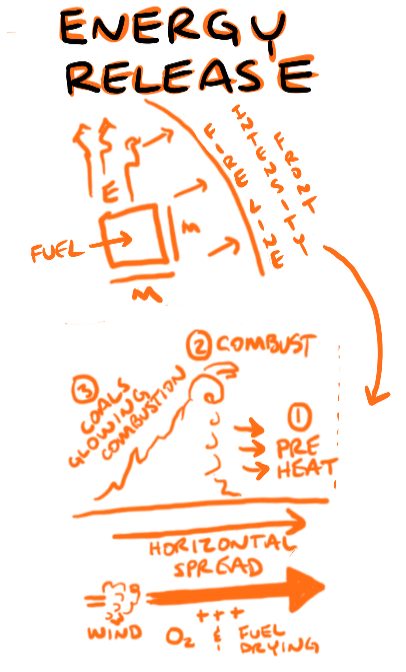 ENERGY
RELEASE
FIRE LINE
INTENSITY
FRONT
E
FUEL
M
M
② COMBUST
③
COALS
GLOWING
COMBUSTION
①
PRE
HEAT
HORIZONTAL
SPREAD
WIND
+++
O₂ & FUEL
DRYING